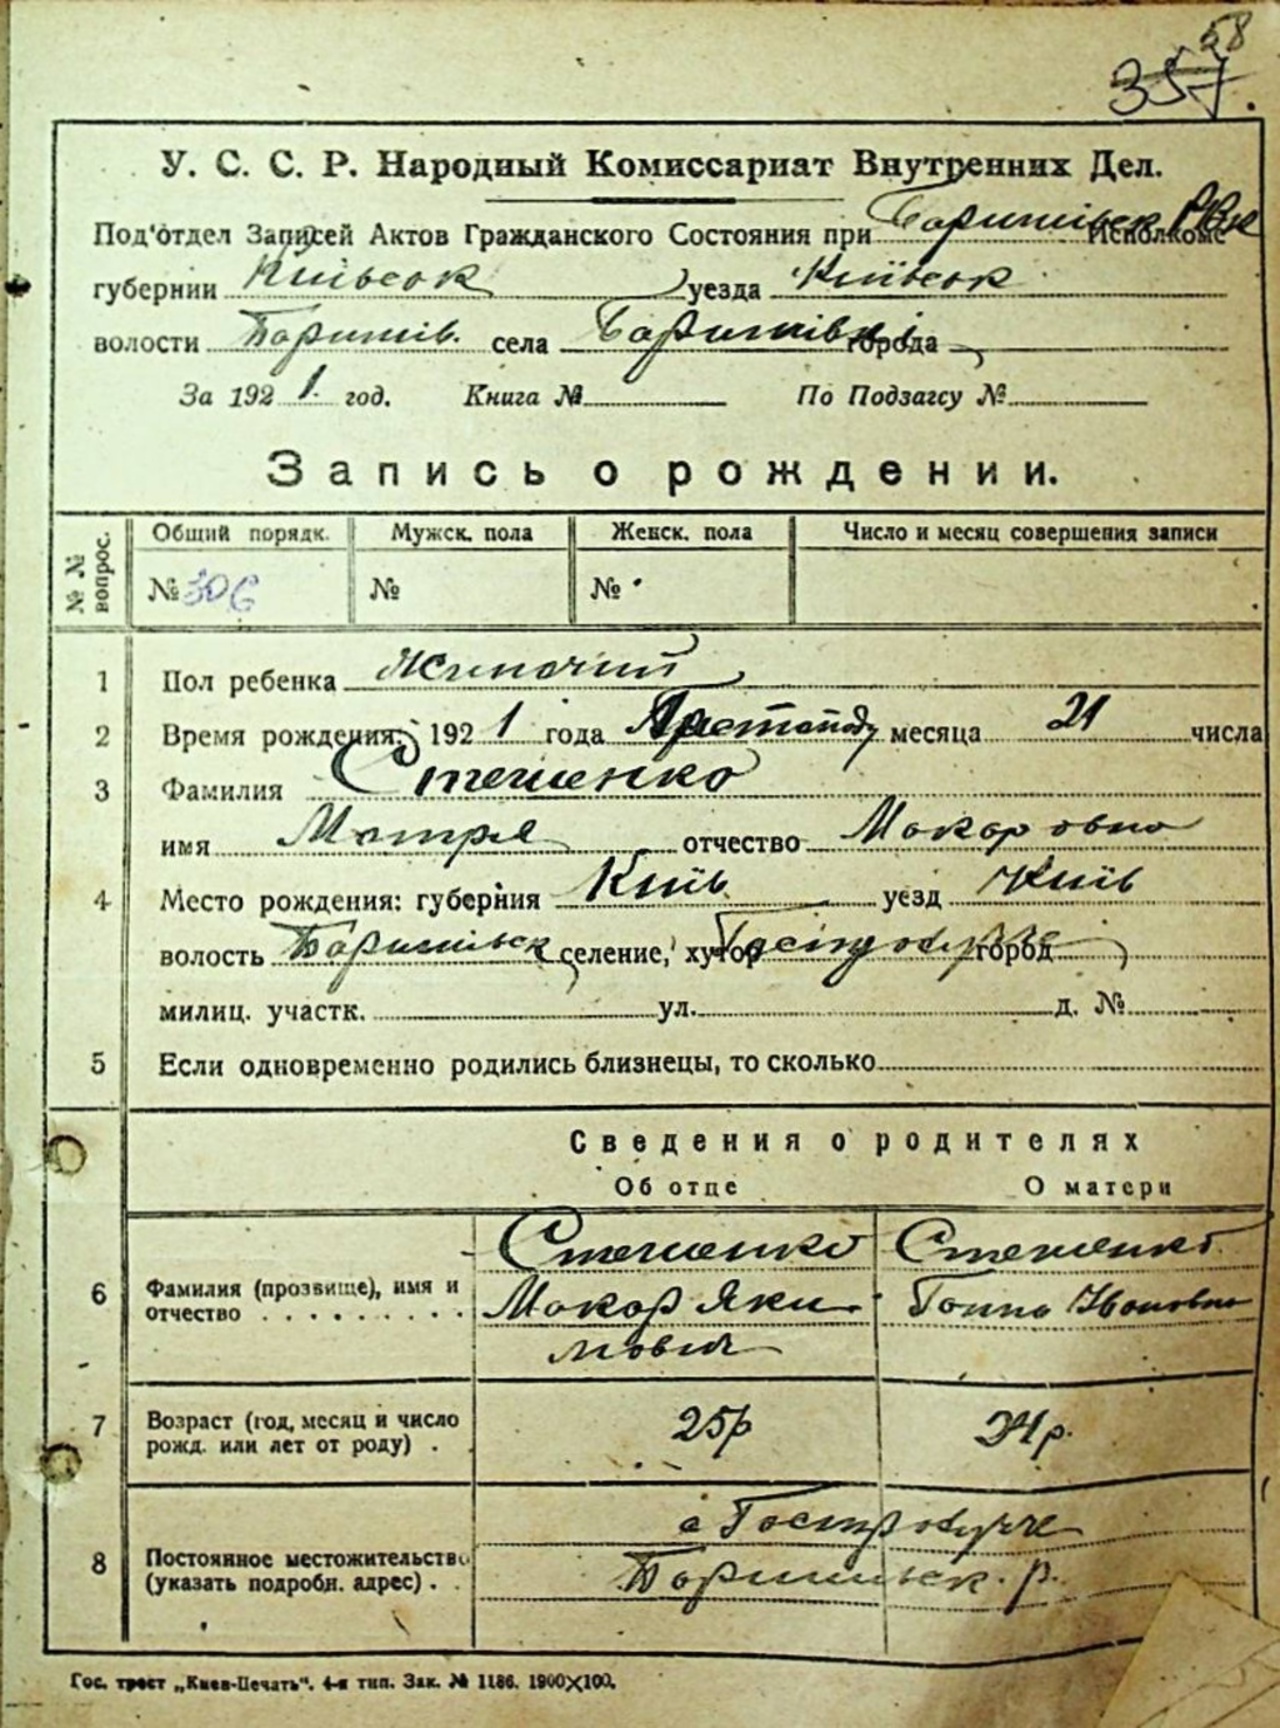 58
357.
У. С. С. Р. Народный Комиссариат Внутренних Дел.
Под'отдел Записей Актов Гражданского Состояния при Баришівськ РВК Исполкоме
губернии Київськ уезда Київськ
волости Баришів. села Баришівка города
За 1921. год. Книга № По Подзагсу №
Запись о рождении.
№ № вопрос. Общий порядк. Мужск. пола Женск. пола Число и месяц совершения записи
№ 306 № №
1 Пол ребенка Жиночий
2 Время рождения: 1921 года месяца 21 числа
3 Фамилия Стешенко
имя Мотря отчество Макаровна
4 Место рождения: губерния Київ уезд Київ
волость Баришівськ селение, хутор город
милиц. участк. ул. д. №
5 Если одновременно родились близнецы, то сколько
Сведения о родителях
Об отце О матери
6 Фамилия (прозвище), имя и отчество . . . . . . . . . Стешенко Макар Якимович Стешенко Ганна Ивановна
7 Возраст (год, месяц и число рожд. или лет от роду) . 25р р.
8 Постоянное местожительство (указать подробн. адрес) . . с Гостролуччє
Баришівськ. р.
Гос. трест „Киев-Печать“. 4-я тип. Зак. № 1186. 1900×100.